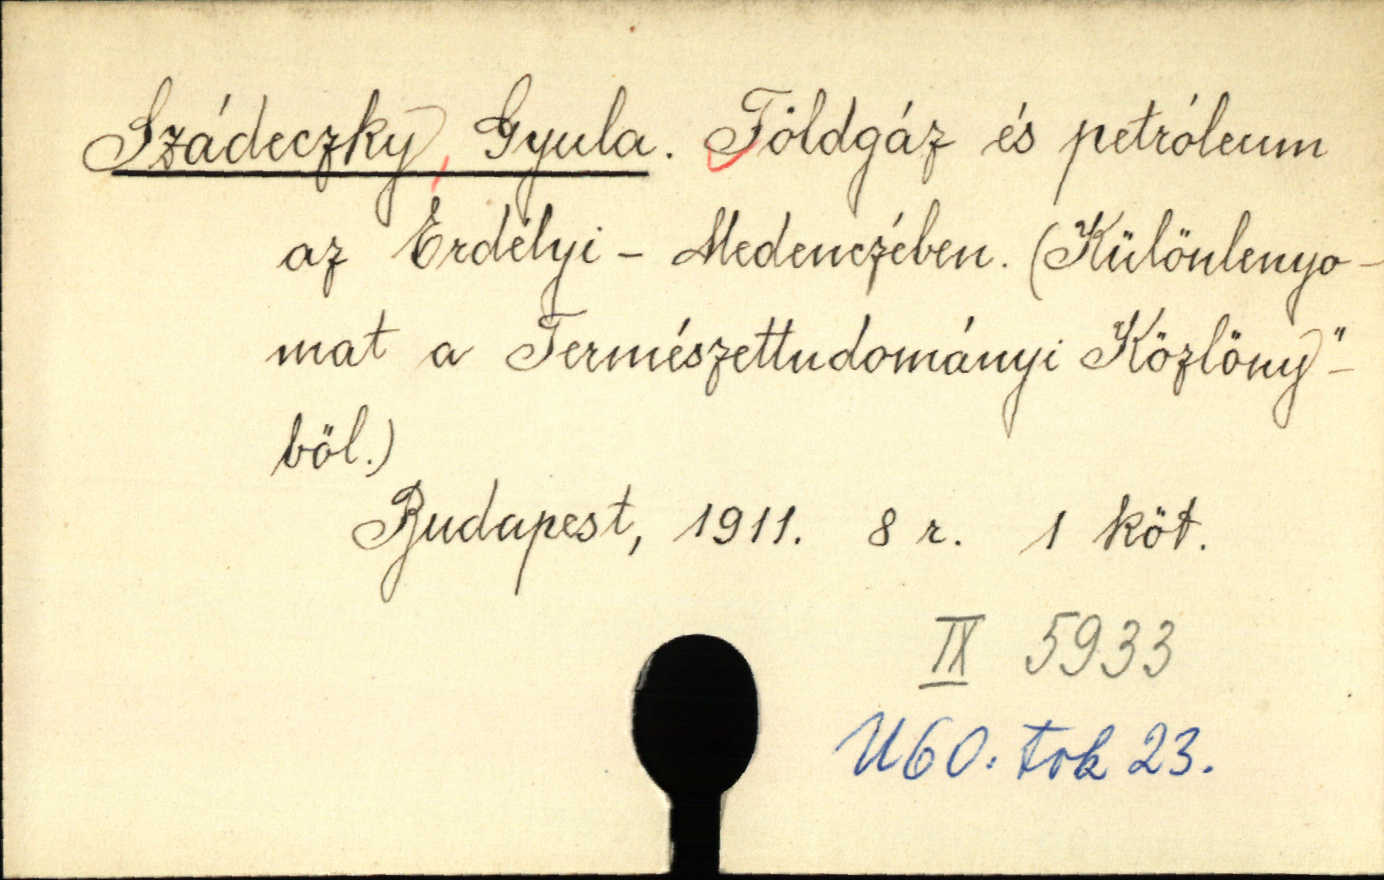 Szádeczky, Gyula. Földgáz és petróleum
az Erdélyi - Medenczében. (Különlenyo-
mat a Természettudományi Közlöny"-
ből.)
Budapest, 1911. 8 r. 1 köt.
IX 5933
U60. tok 23.